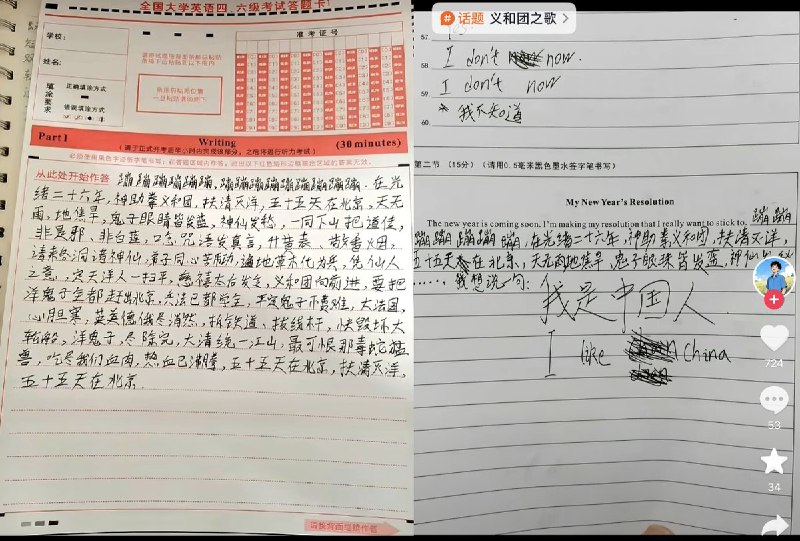 全国大学英语四、六级考试答题卡1
学校：
姓名：
准考证号
填涂要求
正确填涂方式
错误填涂方式
Part I
Writing
(30 minutes)
从此处开始作答
蹦蹦蹦蹦蹦蹦蹦蹦蹦蹦蹦，在光
绪二十六年，神助拳义和团，扶清灭洋，五十五天在北京，天无
雨，地焦旱，鬼子眼睛皆发蓝，神仙发愁，一同下山把道传，
非莫邪、非白莲，口念咒语发真言，升黄表、敬香烟，
请来各洞诸神仙，弟子同心苦用功，遍地草木化为兵，凭仙人
之意，定灭洋人一扫平，慈禧太后发文，义和团向前进，要把
洋鬼子全都赶出北京，兵法已都学全，平定鬼子不费难，大法国，
心胆寒，英美德俄尽消然，拆铁道、拔线杆，快毁坏大
轮船，洋鬼子，尽除完，大清统一江山，最可恨那毒蛇猛
兽，吃尽我们血肉，热血已沸腾，五十五天在北京，扶清灭洋，
五十五天在北京
请按背面继续作答
# 话题 义和团之歌 >
57.
I don't now.
58.
I don't now
59.
我不知道
60.
第二节 （15分）（请用0.5毫米黑色墨水签字笔书写）
My New Year's Resolution
The new year is coming soon. I'm making my resolution that I really want to stick to. 蹦蹦
蹦蹦蹦蹦蹦，在光绪二十六年，神助拳义和团，扶清灭洋，
五十五天在北京，天无雨地焦旱，鬼子眼珠皆发蓝，神仙
……，我想说一句：
我是中国人
I like China
724
53
34